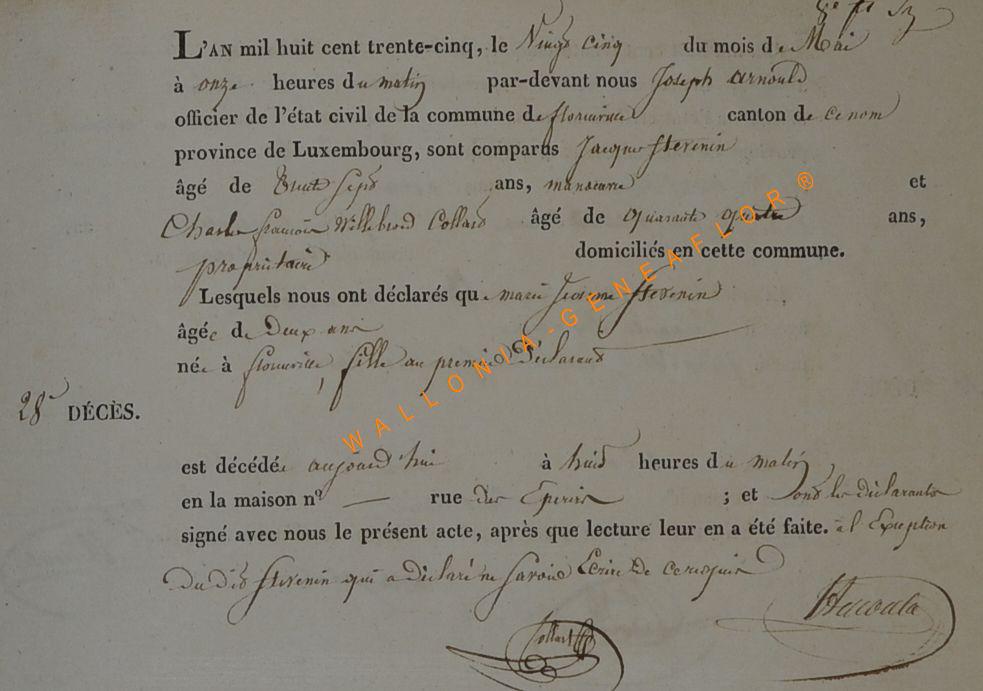 L'AN mil huit cent trente-cinq, le Vingt Cinq du mois de Mai
à onze heures du matin par-devant nous Joseph Arnould
officier de l'état civil de la commune de florenville canton de ce nom
province de Luxembourg, sont comparus Jacques Stevenin
âgé de trente Sept ans, manoeuvre et
Charles francois Willebrord Collard âgé de quarante quatre ans,
propriétaire domiciliés en cette commune.
Lesquels nous ont déclarés que marie Stevenin
âgée de Deux ans
née à florenville, fille au premier Déclarant
28e DÉCÈS.
est décédée aujourd'hui à huit heures du matin
en la maison n° — rue des ; et ont les déclarants
signé avec nous le présent acte, après que lecture leur en a été faite. a l'Exception
Du dit Stevenin qui a déclaré ne savoir Ecrire de ce requis
Collard
WALLONIA-GENEAFLOR ®